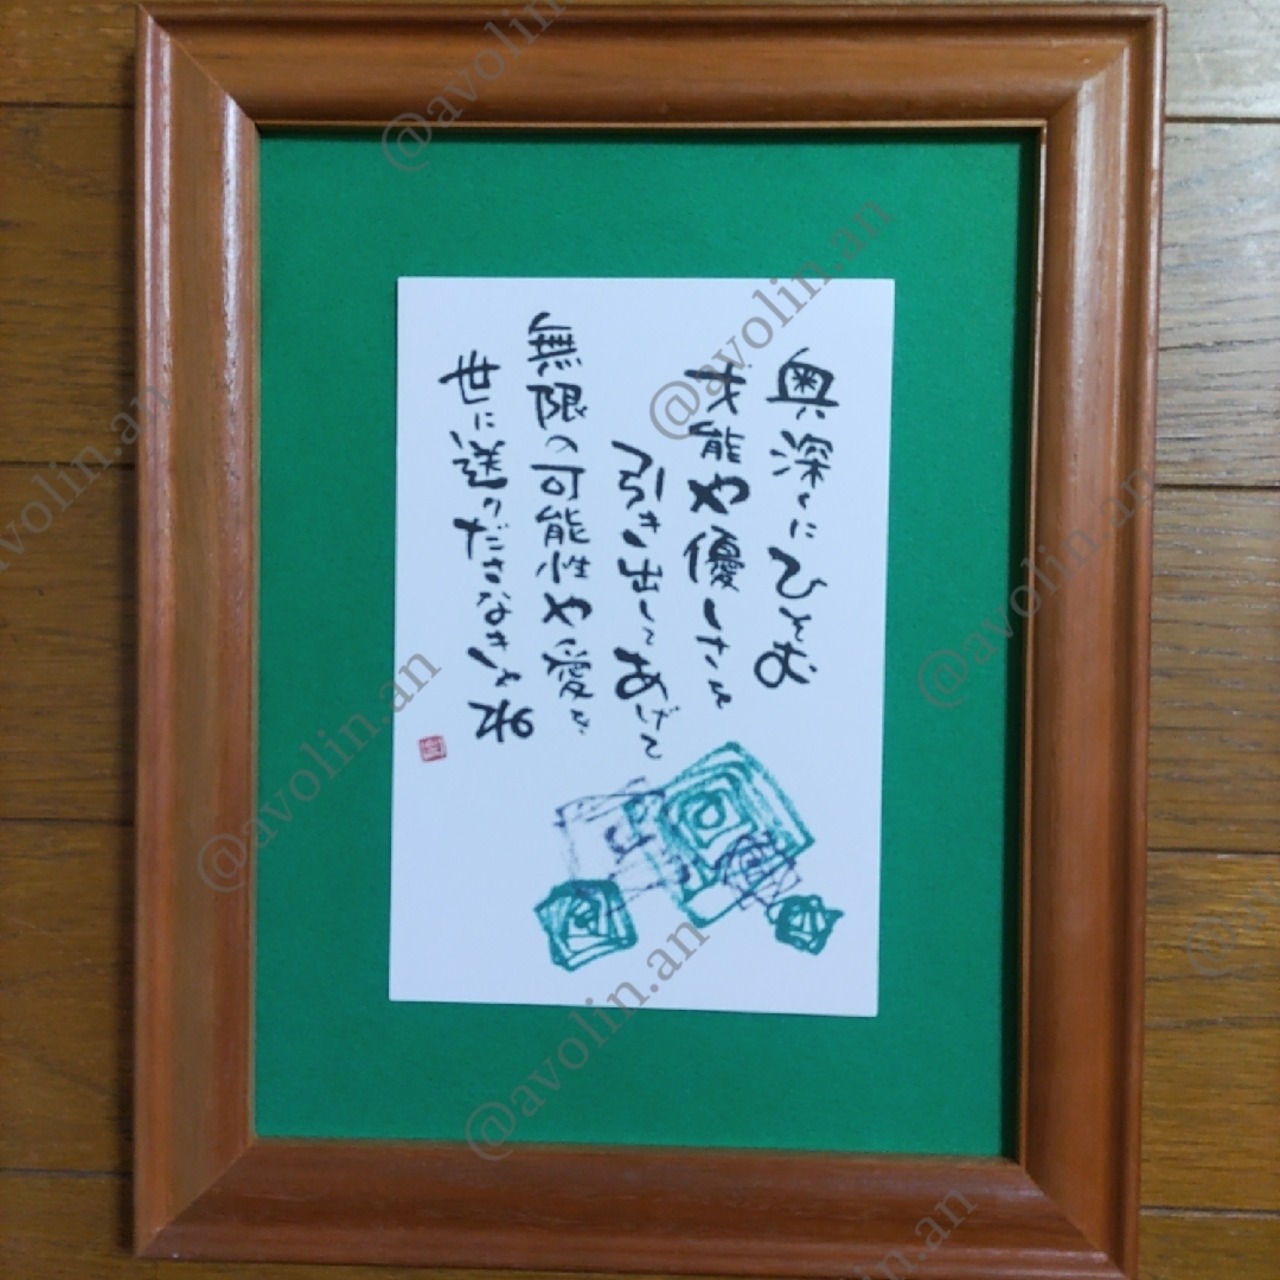 奥深くにひそむ
才能や優しさを
引き出してあげて
無限の可能性や愛を
世に送りださなきゃね
@avolin.an
@avolin.an
@avolin.an
@avolin.an
@avolin.an